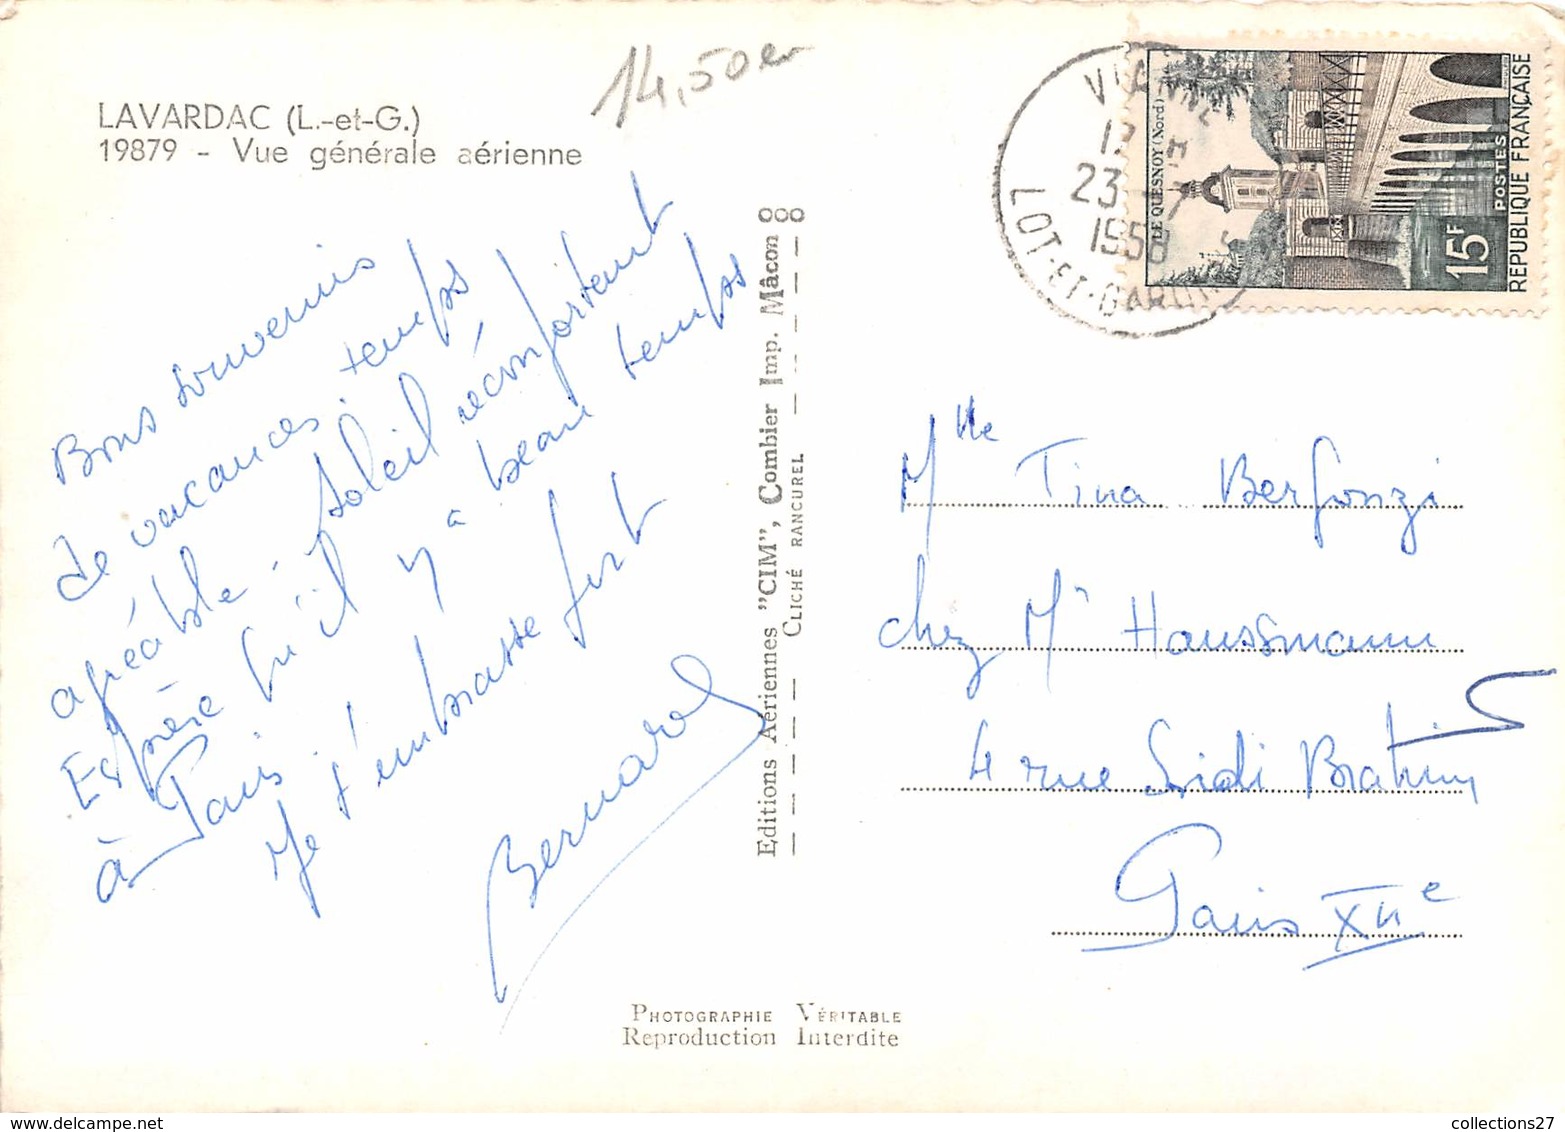 LAVARDAC (L.-et-G.)
19879 - Vue générale aérienne
14,50
Bons souvenirs
de vacances. temps
agréable. Soleil réconfortant
Espère qu'il y a beau temps
à Paris.
Je t'embrasse fort
Bernard
Editions Aériennes "CIM", Combier Imp. Mâcon
CLICHÉ RANCUREL
VIANNE
23 - 7
1958
LOT-ET-GARONNE
LE QUESNOY (Nord)
15F
POSTES
REPUBLIQUE FRANÇAISE
Mlle Tina Berfonzi
chez Mr Haussmann
4 rue Sidi Brahim
Paris XIIe
PHOTOGRAPHIE VÉRITABLE
Reproduction Interdite
collections27